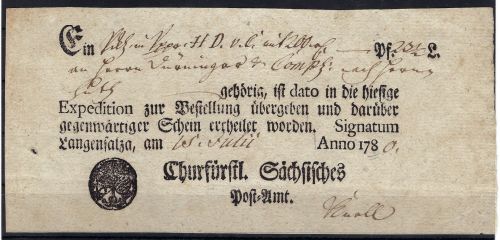 Ein Pack in Papor H D. v. Pf. 23½ L.
an Herrn Dürninger & Comp: nach Herrn
huth
gehörig, ist dato in die hiesige
Expedition zur Bestellung übergeben und darüber
gegenwärtiger Schein ertheilet worden. Signatum
Langensalza, am 15. Julii Anno 1780.
Churfürstl. Sächsisches
Post-Amt.